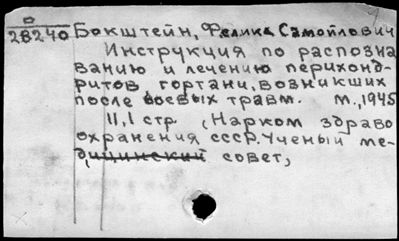 28240 Бокштейн, Феликс Самойлович
Инструкция по распозна
ванию и лечению перихонд-
ритов гортани, возникших
после боевых травм. М., 1945
11,1 стр. (Нарком здраво
охранения СССР. Ученый ме-
дицинский совет,